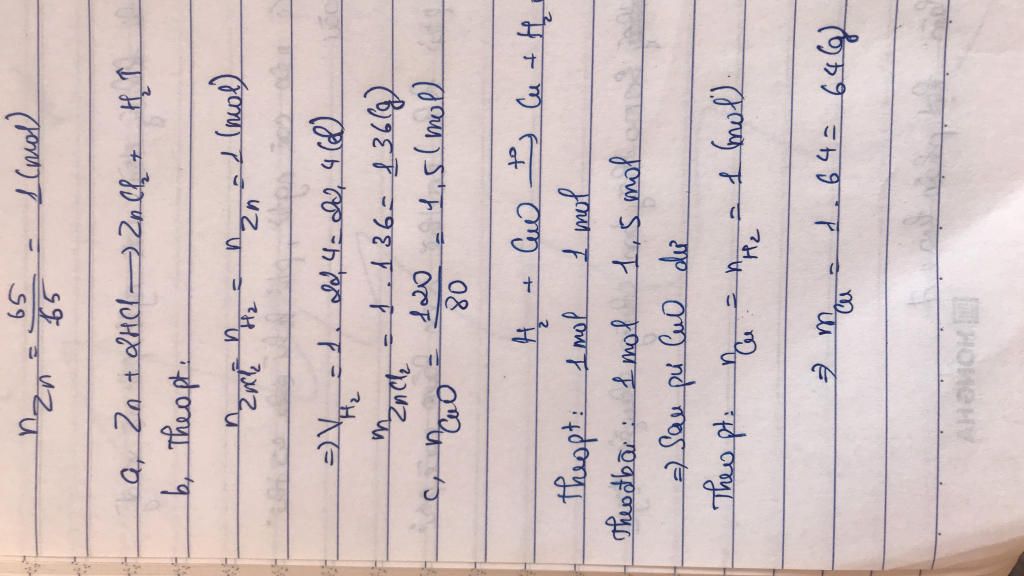 n Zn = 65/65 = 1 (mol)
a, Zn + 2HCl → ZnCl₂ + H₂↑
b, Theo pt:
n ZnCl₂ = n H₂ = n Zn = 1 (mol)
=> V H₂ = 1 . 22,4 = 22,4 (l)
m ZnCl₂ = 1 . 136 = 136 (g)
c, n CuO = 120/80 = 1,5 (mol)
H₂ + CuO –t°→ Cu + H₂
Theo pt: 1 mol 1 mol
Theo đbài: 1 mol 1,5 mol
=> Sau pứ CuO dư
Theo pt: n Cu = n H₂ = 1 (mol)
=> m Cu = 1 . 64 = 64 (g)
HONGHA